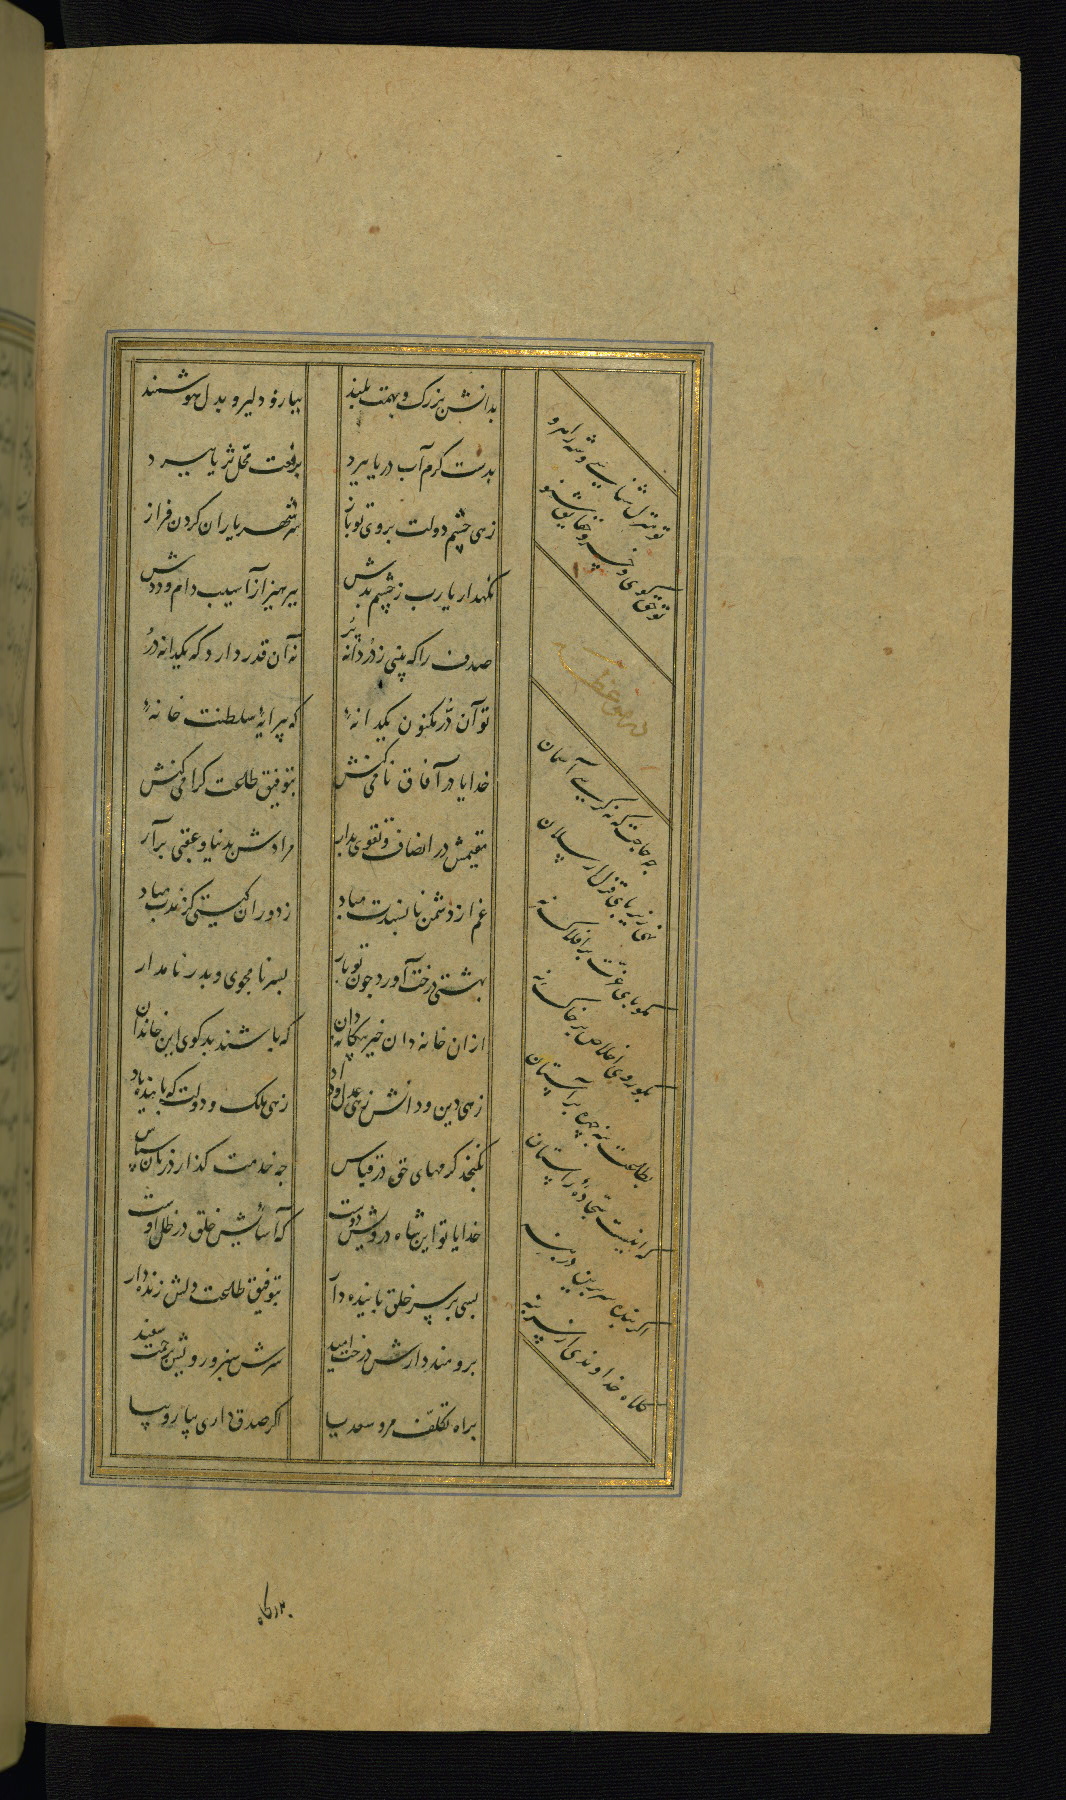 بدانش بزرک و بهمت بلند
ببازو دلیر و بدل هوشمند
بدست کرم آب دریا ببرد
برفعت محل ثریا ببرد
زهی چشم دولت بروی تو باز
سر شهریاران کردن فراز
نکهدار یارب ز چشم بدش
بپرهیز از آسیب دام و ددش
صدف را که بینی ز دردانه پر
نه آن قدر دارد که یکدانه در
تو آن در مکنون یکدانهٔ
که پیرایهٔ سلطنت خانهٔ
خدایا در آفاق نامی کنش
بتوفیق طاعت کرامی کنش
مقیمش در انصاف و تقوی بدار
مرادش بدنیا و عقبی برآر
غم از دشمن ناپسندت مباد
ز دوران کیتی کزندت مباد
بهشتی درخت آورد چون تو بار
پسر نامجوی و پدر نامدار
از ان خاندان خیر بیکانه دان
که باشند بدکوی این خاندان
زهی دین و دانش زهی عدل و داد
زهی ملک و دولت که پاینده باد
نکنجد کرمهای حق در قیاس
چه خدمت کذارد زبان سپاس
خدایا تو این شاه درویش دوست
که آسایش خلق در ظل اوست
بسی بر سر خلق پاینده دار
بتوفیق طاعت دلش زنده دار
برومند دارش درخت امید
سرش سبز و رویش برحمت سفید
براه تکلف مرو سعدیا
اکر صدق داری بیار و بیا
تو منزل شناسی و شه راه رو
تو حق کوی و خسرو حقایق شنو
چه حاجت که نه کرسی آسمان
نهی زیر پای قزل ارسلان
مکو پای عزت بر افلاک نه
بکو روی اخلاص بر خاک نه
بطاعت بنه چهره بر آستان
که اینست سجادهٔ راستان
اکر بندهٔ سر برین در بنه
کلاه خداوندی از سر بنه
بدرکاه